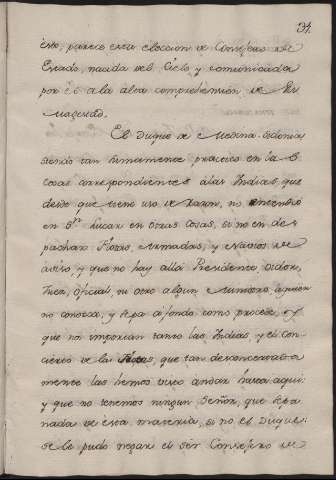 31.
esto, parece esta eleccion de Consejero de
Estado, nacida del Cielo, y comunicada
por él a la alta comprehension de Su
Magestad.
El Duque de Medina-Sidonia
siendo tan sumamente practico en las
cosas correspondientes a las Indias, que
desde que tiene uso de razon, no entendió
en otras cosas, si no en des
pachar Flotas, Armadas, y Navios de
aviso, y que no hay alla Presidente, Oidor,
Juez, Oficial, ni otro algun Ministro, a quien
no conozca, y sepa a fondo como procede, y
que no importan tanto las Indias, y el con
cierto de la Flotas, que tan desconcertada
mente las hemos visto andar hasta aqui:
y que no tenemos ningun Señor, que sepa
nada de esta materia, si no el Duque;
se le pudo negar el ser Consejero de